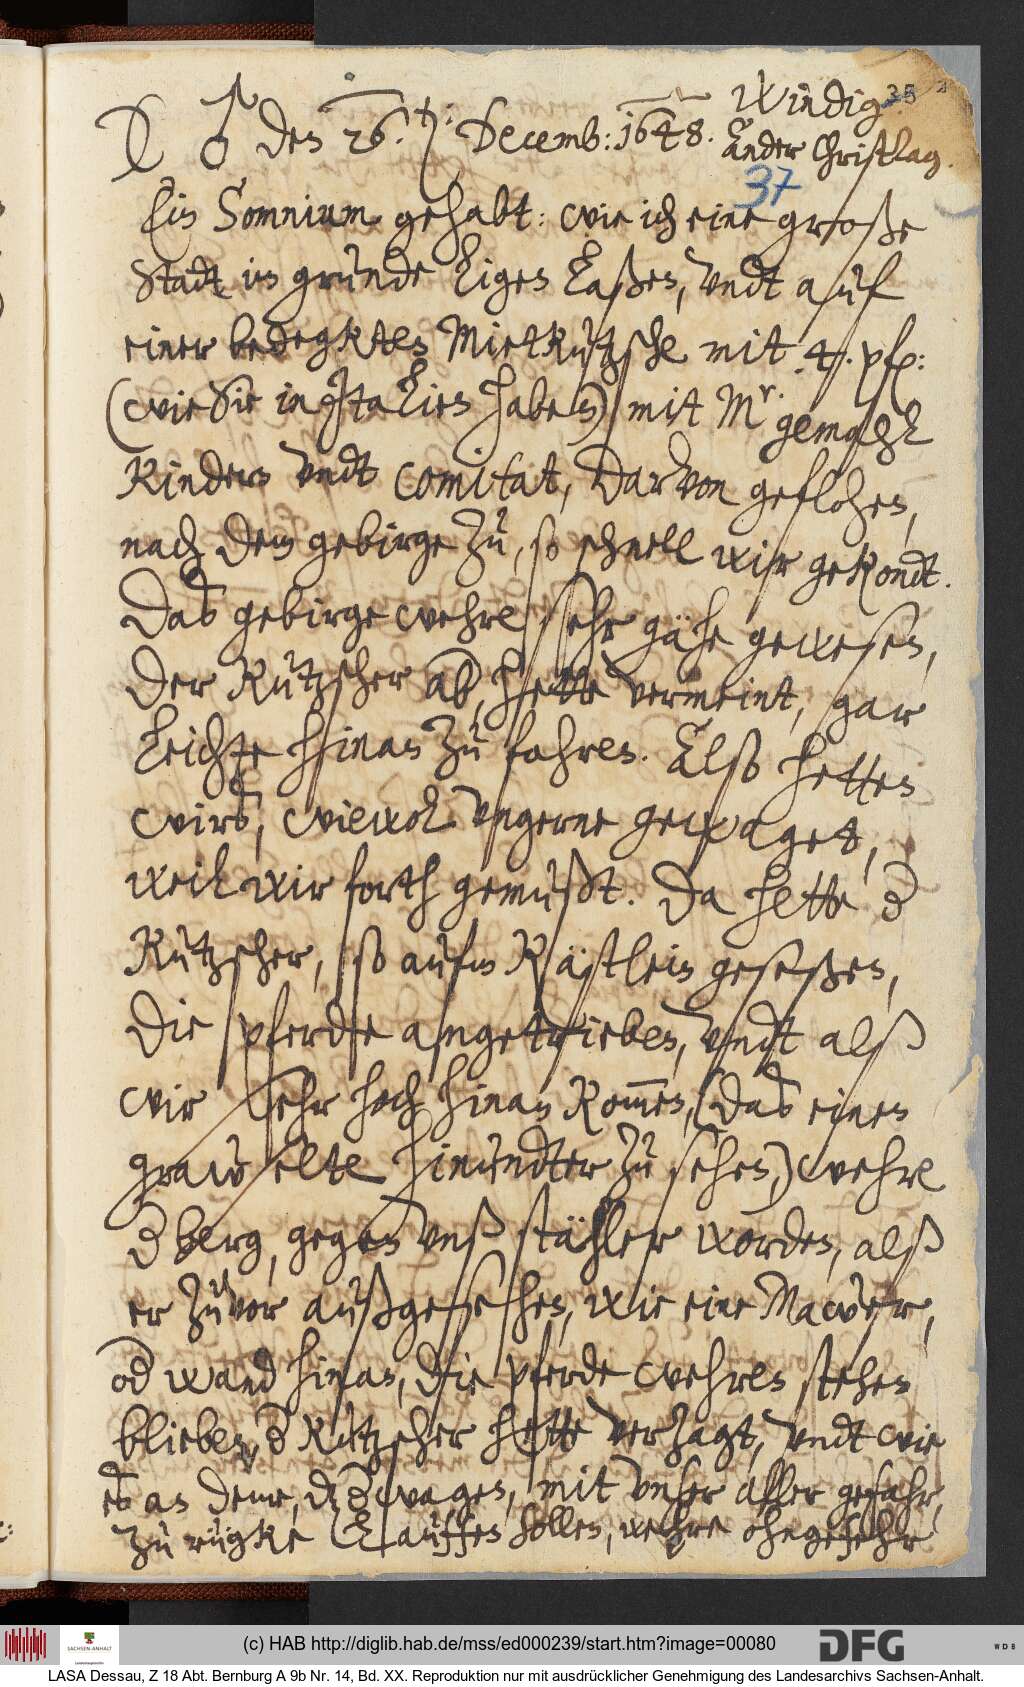 ☽ ♂ den 26.ten: Decemb: 1648.
Windig.
38
ander Christtag.
37
Ein Somnium gehabt: wie ich eine große
Stadt im grunde ligen laßen, undt auf
einer bedegkten Mietkutzsche mit .4. pf:
(wie Sie in Italien haben) mit Mr. gemahl
Kindern undt comitat, darvon geflohen,
nach dem gebirge zu, so schnell wir gekondt.
Das gebirge wehre sehr gähe gewesen,
der Kutzscher ab, hette vermeint, gar
leichte hinan zu fahren. Also hetten
wirs, wiewol ungerne gewaget,
weil wir forth gemußt. Da hette d
Kutzscher, so aufm Kästlein geseßen,
die pferde angetrieben, undt alß
wir sehr hoch hinan kom̅en, (das einen
grawselte hinundter zu sehen,) wehre
d berg, gegen unß stähler worden, alß
er zuvor außgesehen, wie eine Mawer,
od wand hinan, die pferde wehren stehen
blieben, d Kutzscher hette verzagt, undt wie
es an deme, dz d wagen, mit unser aller gefahr,
zu rügke lauffen sollen, wehre ohngefehr
(c) HAB http://diglib.hab.de/mss/ed000239/start.htm?image=00080
SACHSEN-ANHALT
DFG
WDB
LASA Dessau, Z 18 Abt. Bernburg A 9b Nr. 14, Bd. XX. Reproduktion nur mit ausdrücklicher Genehmigung des Landesarchivs Sachsen-Anhalt.